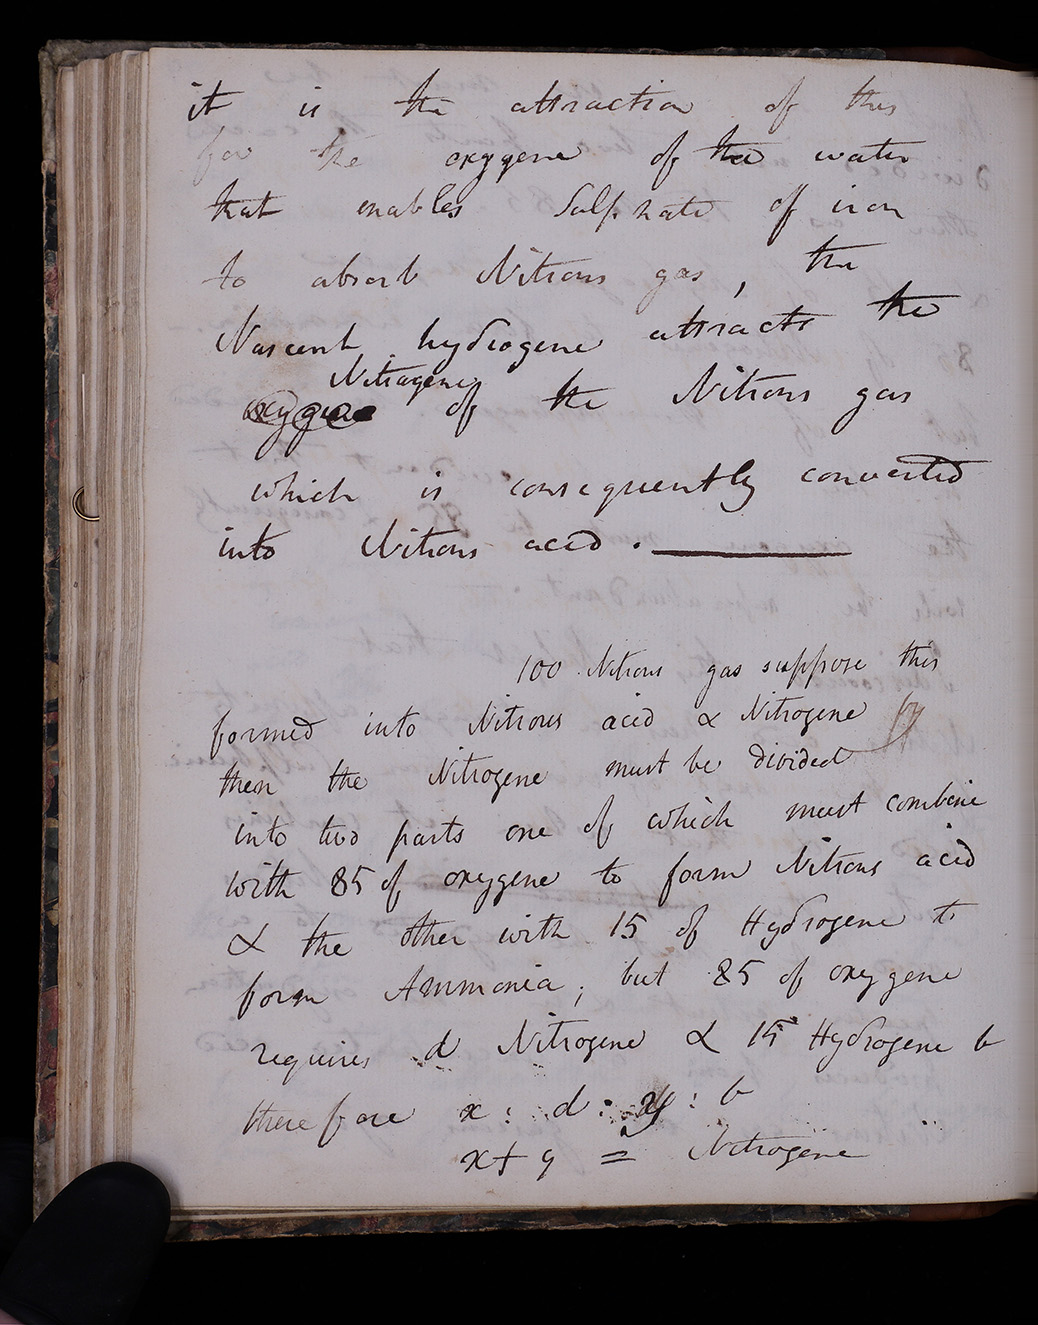 it is the attraction of this
for the oxygene of the water
that enables Sulphate of iron
to absorb Nitrous gas, the
Nascent hydrogene attracts the
Nitrogene
oxygene of the Nitrous gas
which is consequently converted
into Nitrous acid.
100 Nitrous gas suppose this
formed into Nitrous acid & Nitrogene
then the Nitrogene must be divided
into two parts one of which must combine
with 85 of oxygene to form Nitrous acid
& the other with 15 of Hydrogene to
form Ammonia; but 85 of oxygene
requires d Nitrogene & 15 Hydrogene b
therefore x : d : y : b
x + y = Nitrogene